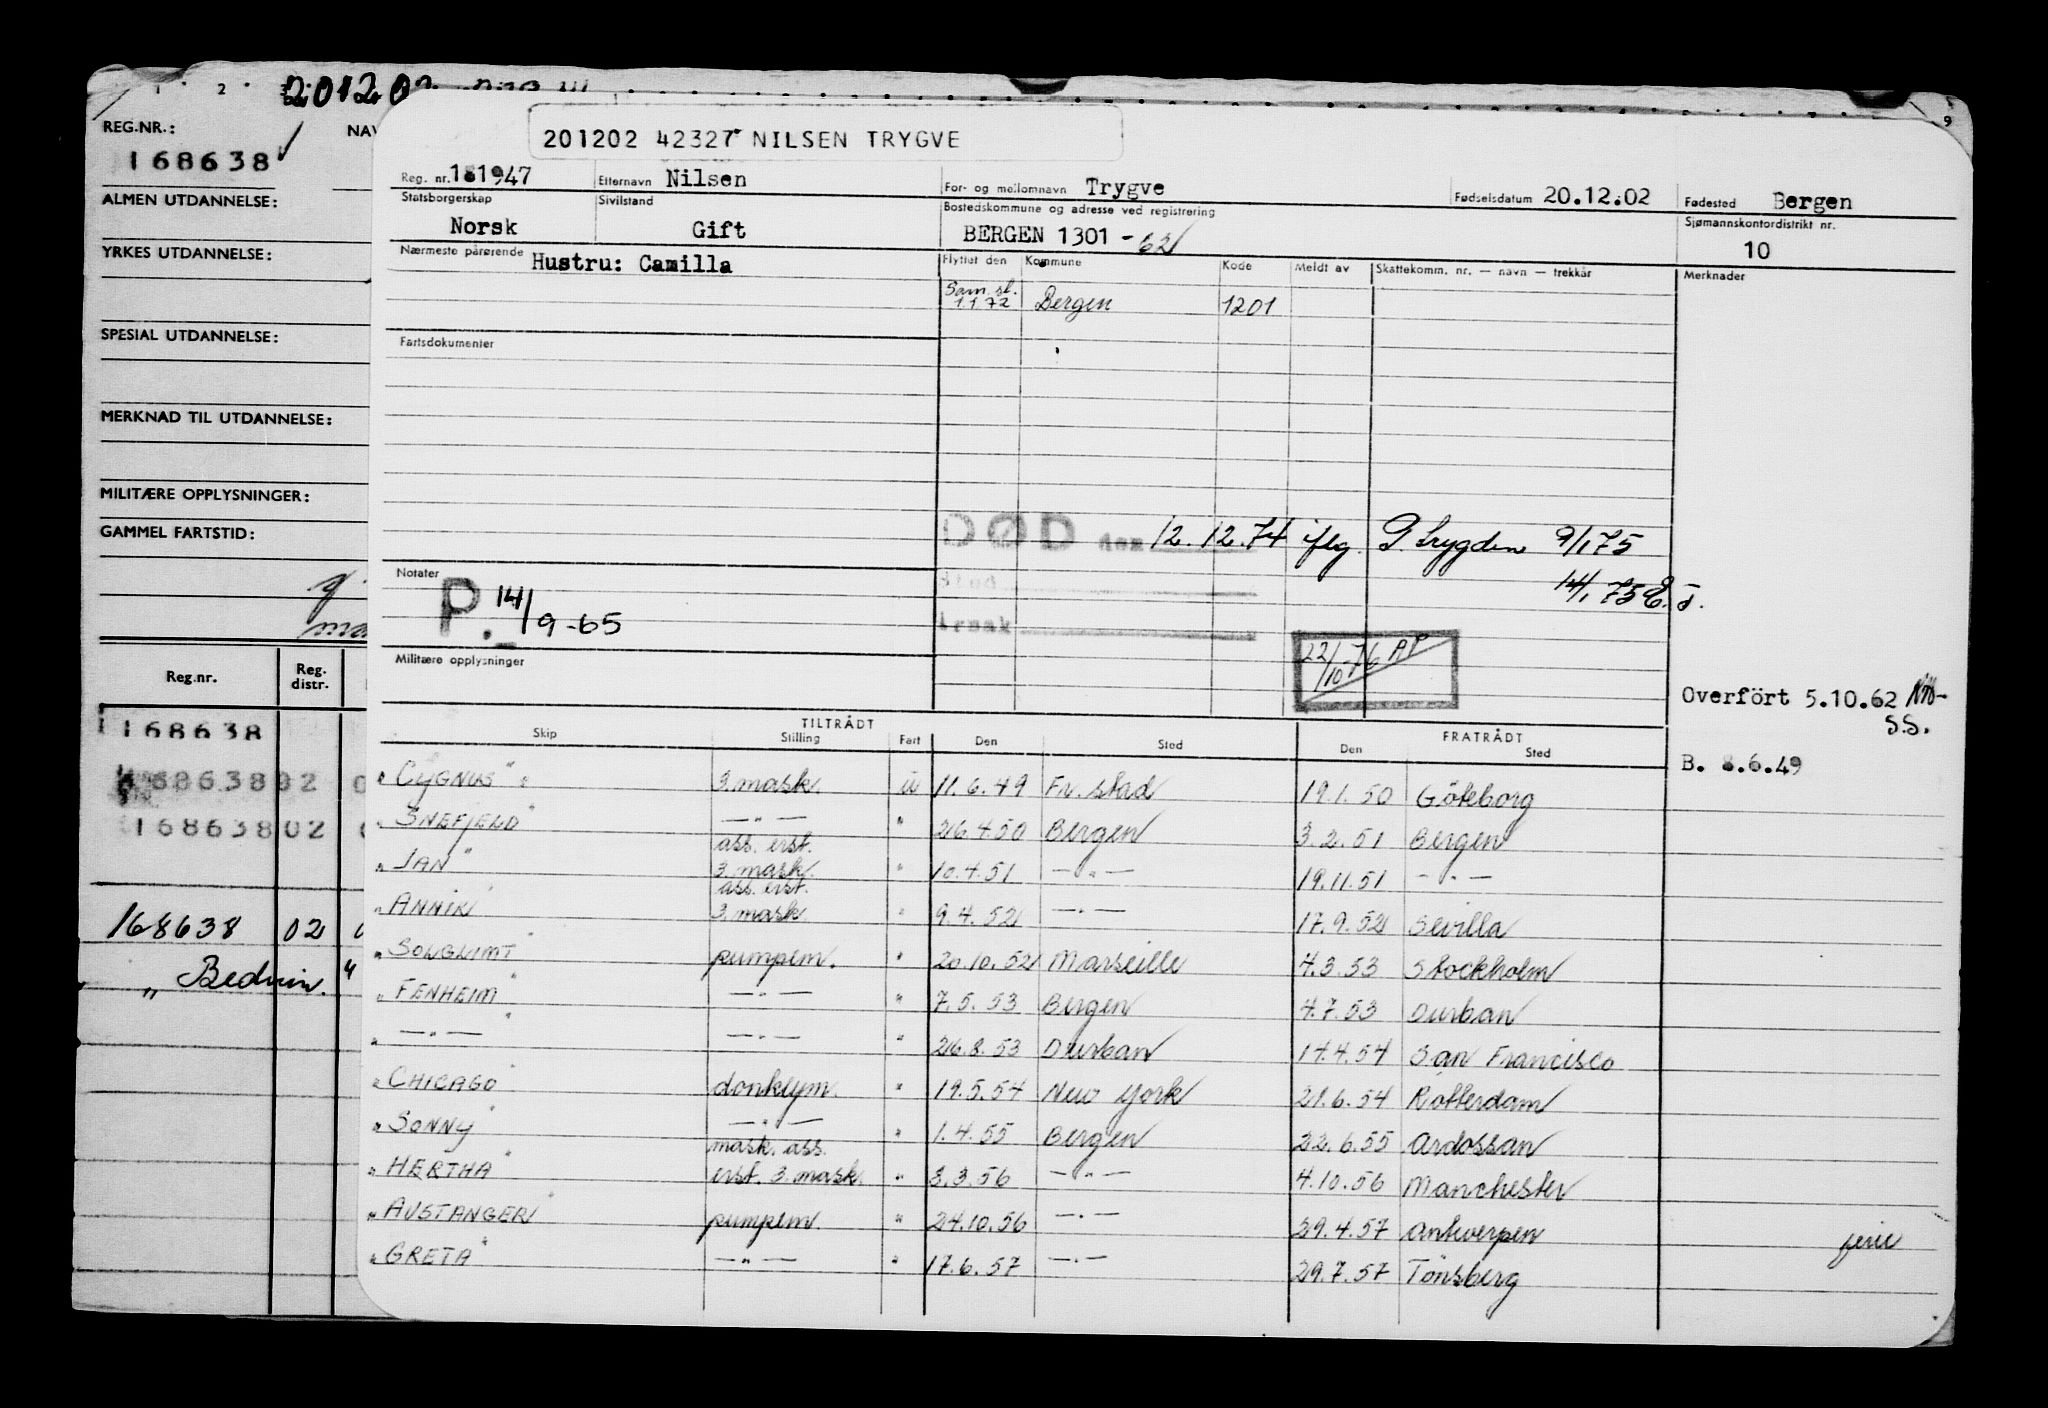 1 2 3 201202
REG.NR.: NAV
168638 ✓
ALMEN UTDANNELSE:
YRKES UTDANNELSE:
SPESIAL UTDANNELSE:
MERKNAD TIL UTDANNELSE:
MILITÆRE OPPLYSNINGER:
GAMMEL FARTSTID:
Reg.nr. Reg. distr.
168638
16863802 0
16863802
168638 02
„ Beduin. "
9
201202 42327 NILSEN TRYGVE
Reg. nr. 181947 Etternavn Nilsen For- og mellomnavn Trygve Fødselsdatum 20.12.02 Fødested Bergen
Statsborgerskap Sivilstand Bostedskommune og adresse ved registrering Sjømannskontordistrikt nr.
Norsk Gift BERGEN 1301 - 62 10
Nærmeste pårørende Hustru: Camilla Flyttet den Kommune Kode Meldt av Skattekomm. nr. — navn — trekkår Merknader
Sam. sl. 1.1.72 Bergen 1201
Fartsdokumenter
DØD den 12.12.74 iflg. P. Trygden 9/1 75
Notater Sted 14/1 75 E.J.
P. 14/9-65 Årsak
22/10-76 AP
Militære opplysninger
Overført 5.10.62
S.S.
B. 8.6.49
TILTRÅDT FRATRÅDT
Skip Stilling Fart Den Sted Den Sted
" CYGNUS " 3. mask. u 11.6.49 Fr. stad 19.1.50 Göteborg
" SNEFJELD " — " — " 26.4.50 Bergen 3.2.51 Bergen
ass. erst.
" JAN " 3. mask. " 10.4.51 — " — 19.11.51 — " —
ass. erst.
" ANNIK " 3. mask. " 9.4.52 — " — 17.9.52 Sevilla
" SOLGLIMT " pumpem. " 20.10.52 Marseille 4.3.53 Stockholm
" FENHEIM " — " — " 7.5.53 Bergen 4.7.53 Durban
" — " — " — " — " 26.8.53 Durban 14.4.54 San Francisco
" CHICAGO " donkeym. " 19.5.54 New York 21.6.54 Rotterdam
" SONNY " — " — " 1.4.55 Bergen 22.6.55 Ardossan
mask. ass.
" HERTHA " erst. 3. mask. " 3.3.56 — " — 4.10.56 Manchester
" AUSTANGER " pumpem. " 24.10.56 — " — 29.4.57 Antwerpen ferie
" GRETA " — " — " 17.6.57 — " — 29.7.57 Tönsberg